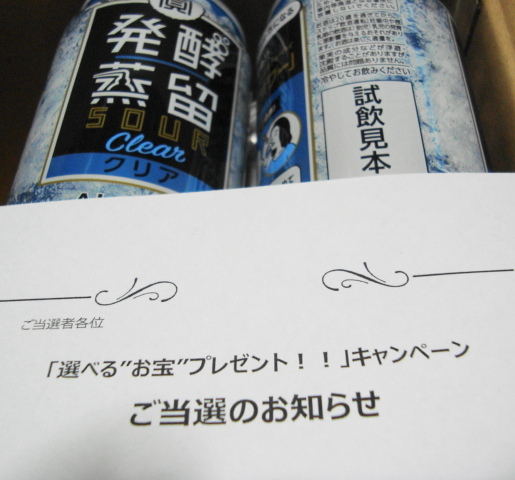 寶
発酵
蒸留
SOUR
Clear
クリア
冷やしてお飲みください
試飲見本
ご当選者各位
「選べる"お宝"プレゼント！！」キャンペーン
ご当選のお知らせ